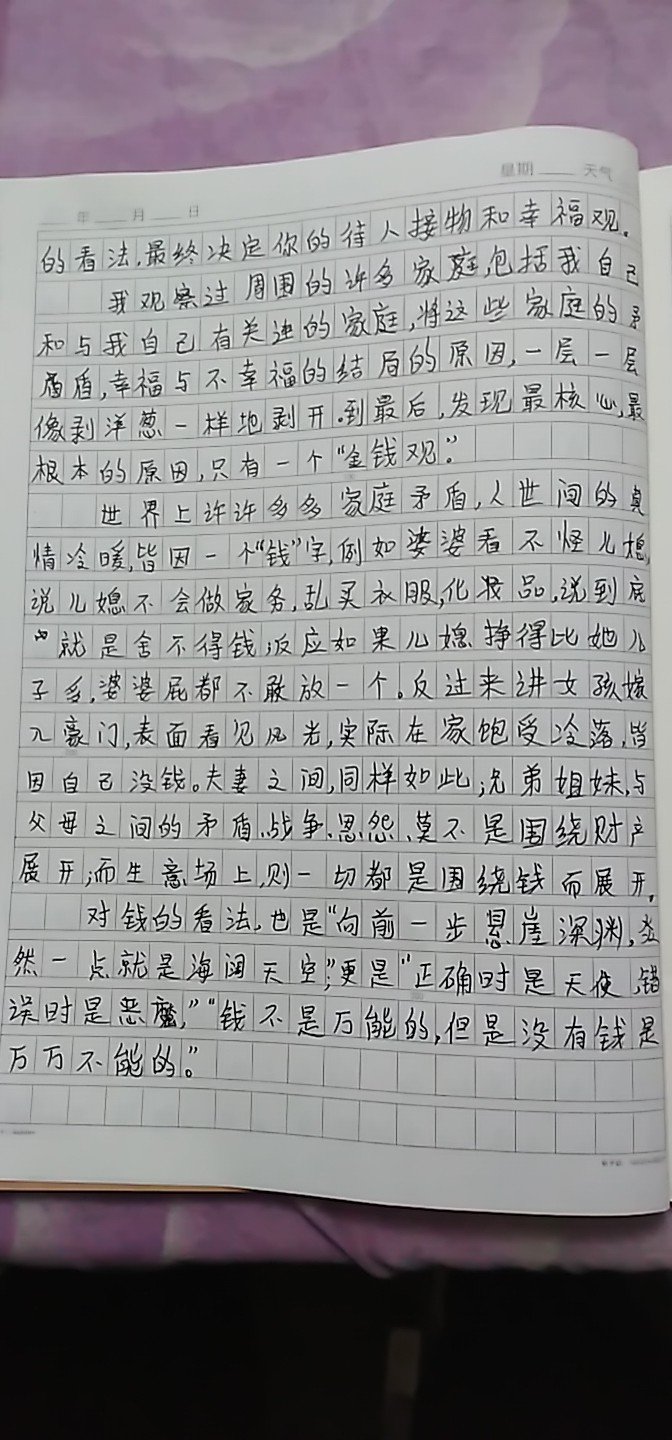 星期 天气
年 月 日
的看法,最终决定你的待人接物和幸福观。
我观察过周围的许多家庭,包括我自己
和与我自己有关连的家庭,将这些家庭的矛
盾盾,幸福与不幸福的结局的原因,一层一层
像剥洋葱一样地剥开。到最后,发现最核心,最
根本的原因,只有一个“金钱观”。
世界上许许多多家庭矛盾,人世间的真
情冷暖,皆因一个“钱”字,例如婆婆看不怪儿媳,
说儿媳不会做家务,乱买衣服,化妆品,说到底
就是舍不得钱;反应如果儿媳挣得比她儿
子多,婆婆屁都不敢放一个。反过来讲女孩嫁
入豪门,表面看见风光,实际在家饱受冷落,皆
因自己没钱。夫妻之间,同样如此;兄弟姐妹,与
父母之间的矛盾、战争、恩怨、莫不是围绕财产
展开;而生意场上,则一切都是围绕钱而展开。
对钱的看法,也是“向前一步悬崖深渊,
然一点就是海阔天空”;更是“正确时是天使,错
误时是恶魔,”“钱不是万能的,但是没有钱是
万万不能的。”